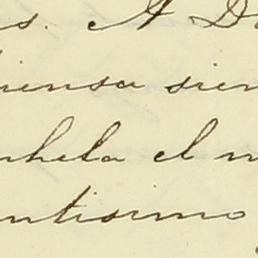 s. A D
iensa sien
nhela el n
ntisimo